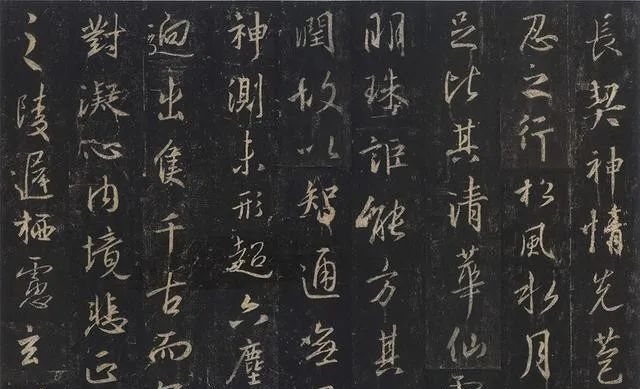 長契神情先苞
忍之行松風水月
足比其清華仙
朗珠詎能方其
潤故以智通無
神測未形超六塵
迥出隻千古而
對凝心內境悲正
之陵遲栖慮玄